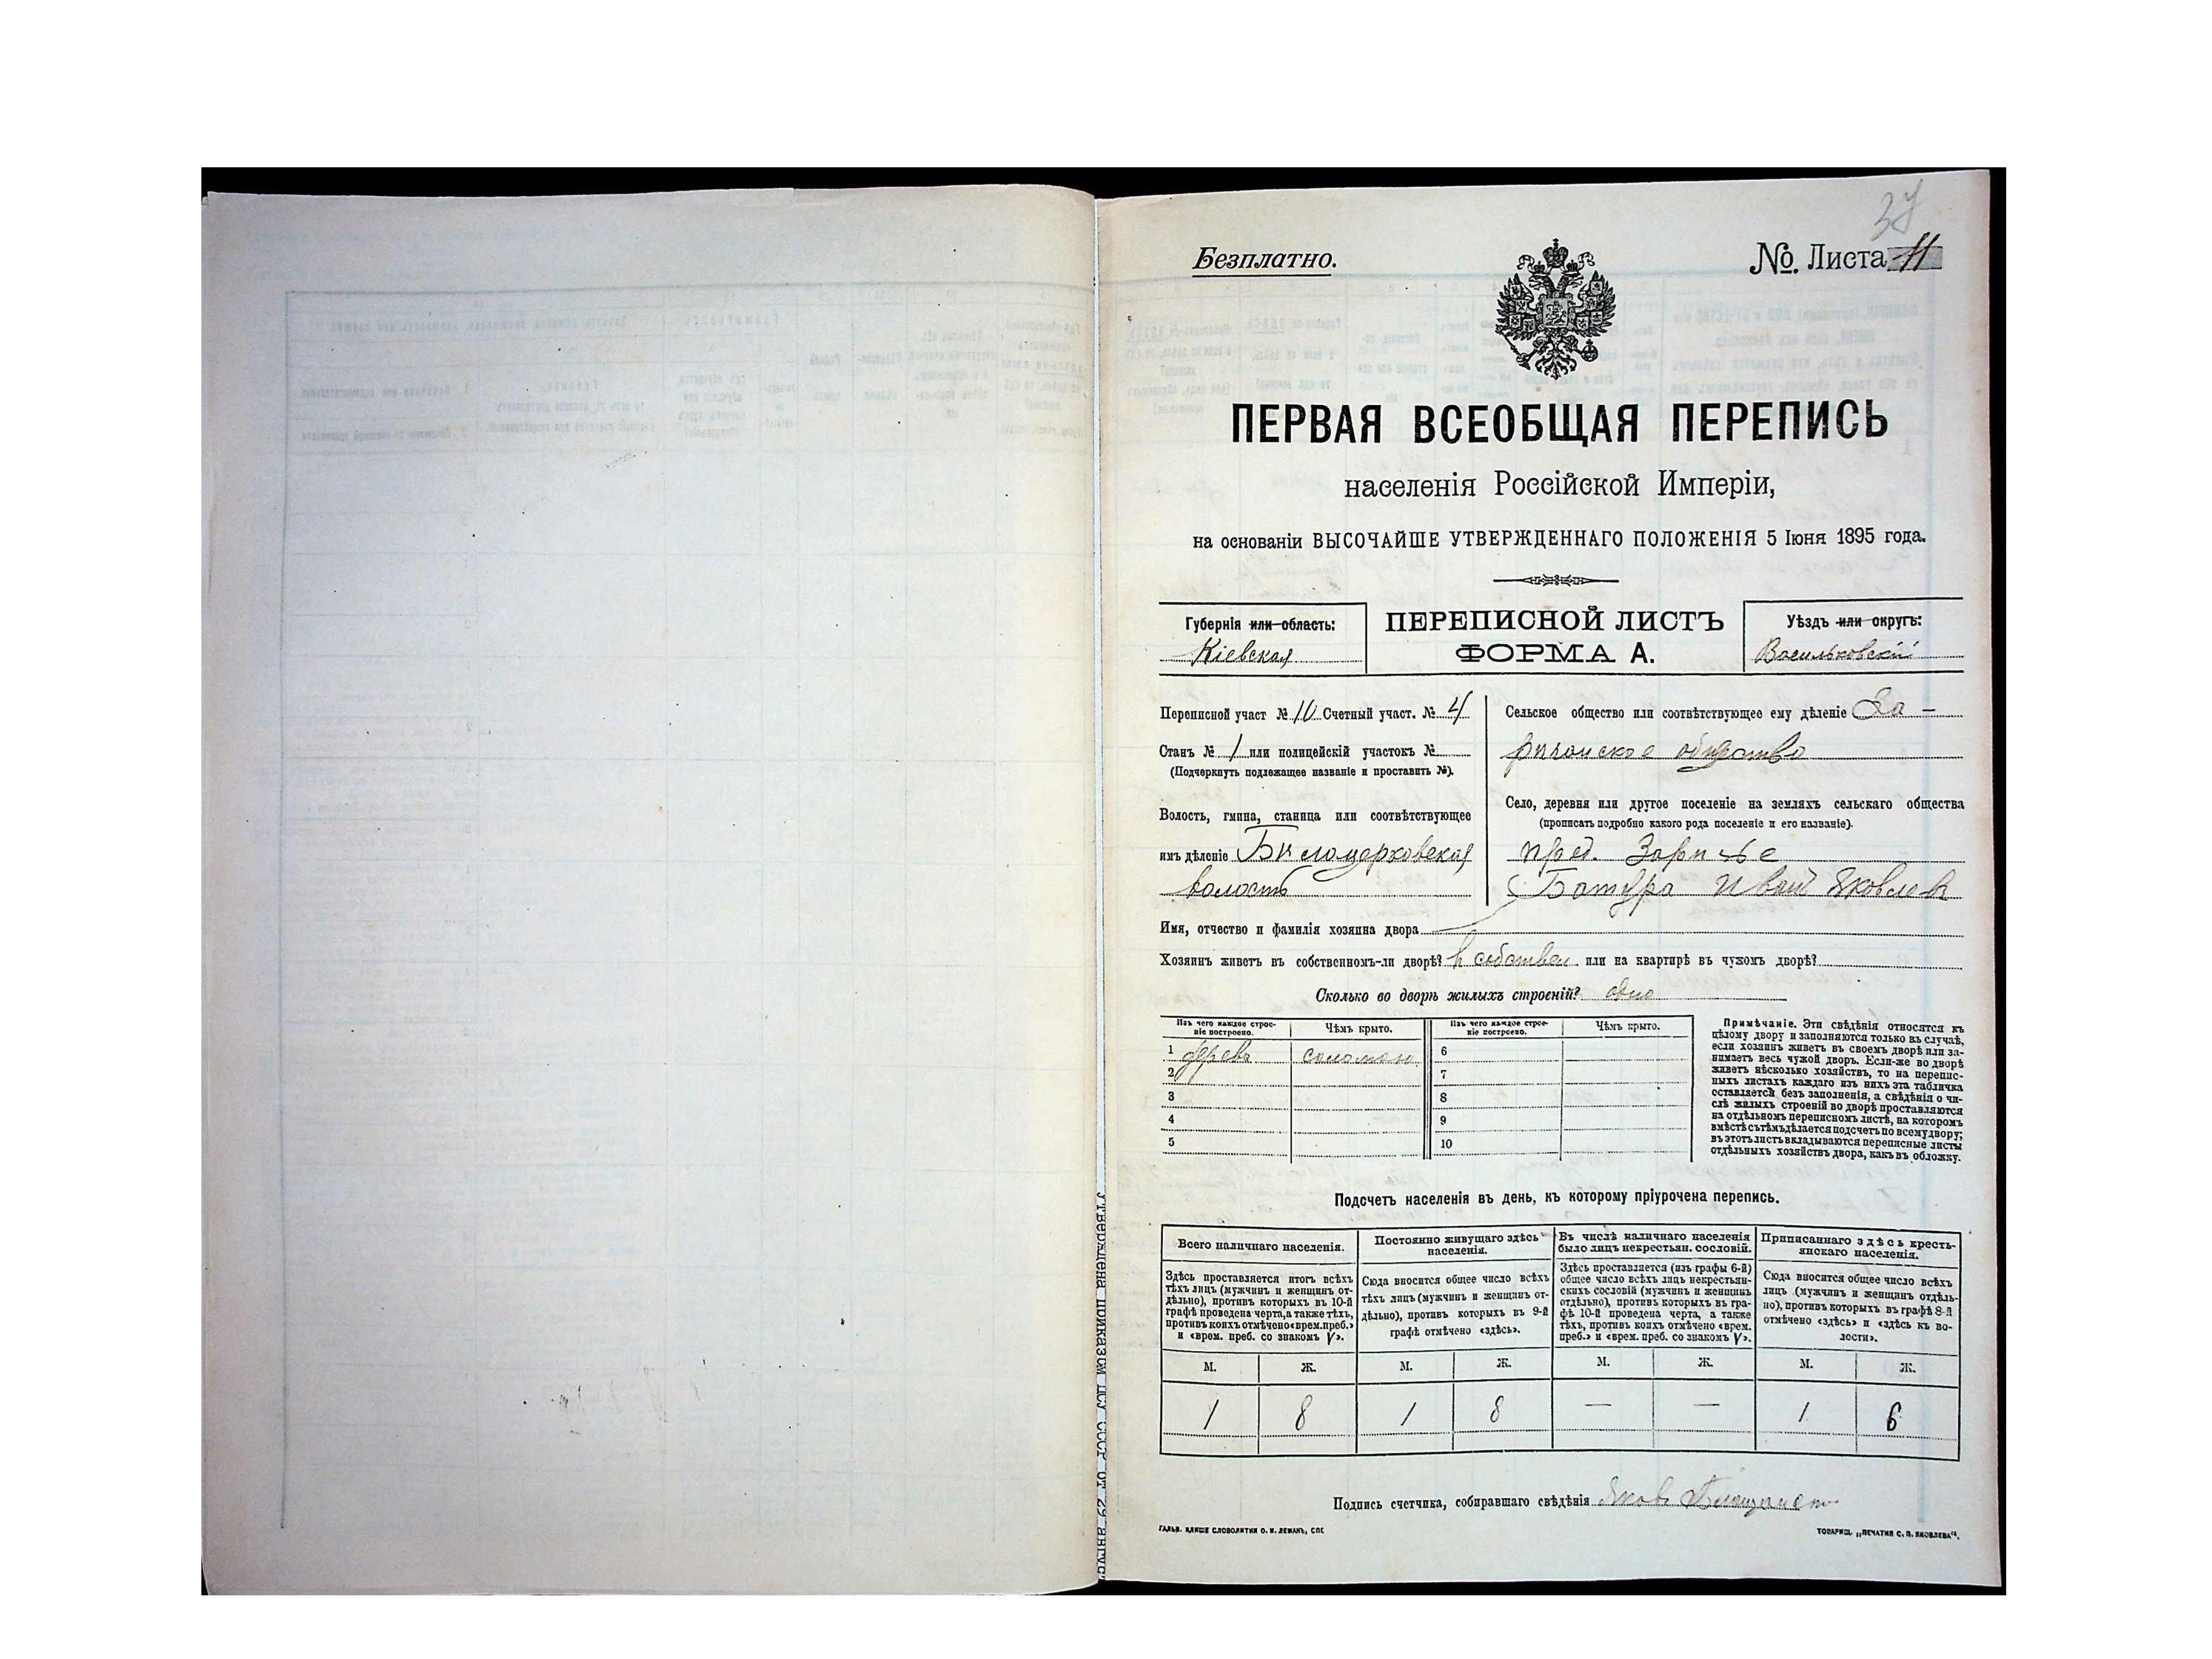 37
Безплатно.
№. Листа 11
ПЕРВАЯ ВСЕОБЩАЯ ПЕРЕПИСЬ
населенія Россійской Имперіи,
на основаніи ВЫСОЧАЙШЕ УТВЕРЖДЕННАГО ПОЛОЖЕНІЯ 5 Іюня 1895 года.
Губернія или область:
Кіевская
ПЕРЕПИСНОЙ ЛИСТЪ
ФОРМА А.
Уѣздъ или округъ:
Васильковскій
Переписной участ № 10 Счетный участ. № 4
Станъ № 1 или полицейскій участокъ №
(Подчеркнуть подлежащее названіе и проставить №).
Волость, гмина, станица или соотвѣтствующее
имъ дѣленіе Бѣлоцерковская
волость
Сельское общество или соотвѣтствующее ему дѣленіе За-
рѣчанское общество
Село, деревня или другое поселеніе на земляхъ сельскаго общества
(прописать подробно какого рода поселеніе и его названіе).
пред. Зарѣчье
Батура Иван Яковлев
Имя, отчество и фамилія хозяина двора
Хозяинъ живетъ въ собственномъ-ли дворѣ? в собствен или на квартирѣ въ чужомъ дворѣ?
Сколько во дворѣ жилыхъ строеній? одно
Изъ чего каждое строе-
ніе построено.
Чѣмъ крыто.
Изъ чего каждое строе-
ніе построено.
Чѣмъ крыто.
1 дерева соломою 6
2 7
3 8
4 9
5 10
Примѣчаніе. Эти свѣдѣнія относятся къ
цѣлому двору и заполняются только въ случаѣ,
если хозяинъ живетъ въ своемъ дворѣ или за-
нимаетъ весь чужой дворъ. Если-же во дворѣ
живетъ нѣсколько хозяйствъ, то на перепис-
ныхъ листахъ каждаго изъ нихъ эта табличка
оставляется безъ заполненія, а свѣдѣнія о чи-
слѣ жилыхъ строеній во дворѣ проставляются
на отдѣльномъ переписномъ листѣ, на которомъ
вмѣстѣ съ тѣмъ дѣлается подсчетъ по всему двору;
въ этотъ листъ вкладываются переписные листы
отдѣльныхъ хозяйствъ двора, какъ въ обложку.
Подсчетъ населенія въ день, къ которому пріурочена перепись.
Всего наличнаго населенія.
Здѣсь проставляется итогъ всѣхъ
тѣхъ лицъ (мужчинъ и женщинъ от-
дѣльно), противъ которыхъ въ 10-й
графѣ проведена черта, а также тѣхъ,
противъ коихъ отмѣчено «врем. преб.»
и «врем. преб. со знакомъ V».
Постоянно живущаго здѣсь
населенія.
Сюда вносится общее число всѣхъ
тѣхъ лицъ (мужчинъ и женщинъ от-
дѣльно), противъ которыхъ въ 9-й
графѣ отмѣчено «здѣсь».
Въ числѣ наличнаго населенія
было лицъ некрестьян. сословій.
Здѣсь проставляется (изъ графы 6-й)
общее число всѣхъ лицъ некрестьян-
скихъ сословій (мужчинъ и женщинъ
отдѣльно), противъ которыхъ въ гра-
фѣ 10-й проведена черта, а также
тѣхъ, противъ коихъ отмѣчено «врем.
преб.» и «врем. преб. со знакомъ V».
Приписаннаго здѣсь кресть-
янскаго населенія.
Сюда вносится общее число всѣхъ
лицъ (мужчинъ и женщинъ отдѣль-
но), противъ которыхъ въ графѣ 8-й
отмѣчено «здѣсь» и «здѣсь къ во-
лости».
М. Ж. М. Ж. М. Ж. М. Ж.
1 8 1 8 — — 1 6
Подпись счетчика, собиравшаго свѣдѣнія Яков
ГАЛЬВ. КЛИШЕ СЛОВОЛИТНИ О. И. ЛЕМАНЪ, СПБ
ТОВАРИЩ. „ПЕЧАТНЯ С. П. ЯКОВЛЕВА“.